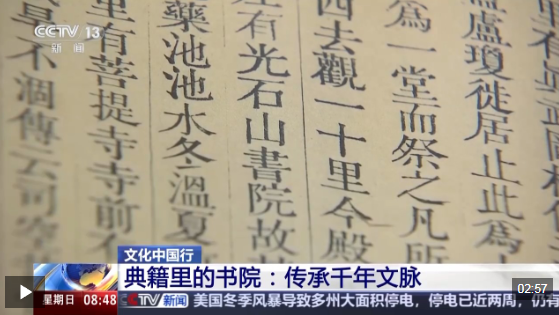 CCTV 13
新闻
盧瓊徙居止此
為一堂而祭之凡所
西去觀一十里今殿
有光石山書院故
藥池池水冬溫夏
里有菩提寺寺前
不個傳云司空
文化中国行
典籍里的书院：传承千年文脉
02:57
星期日 08:48 CCTV 新闻 美国冬季风暴导致多州大面积停电，停电已近两周，仍有